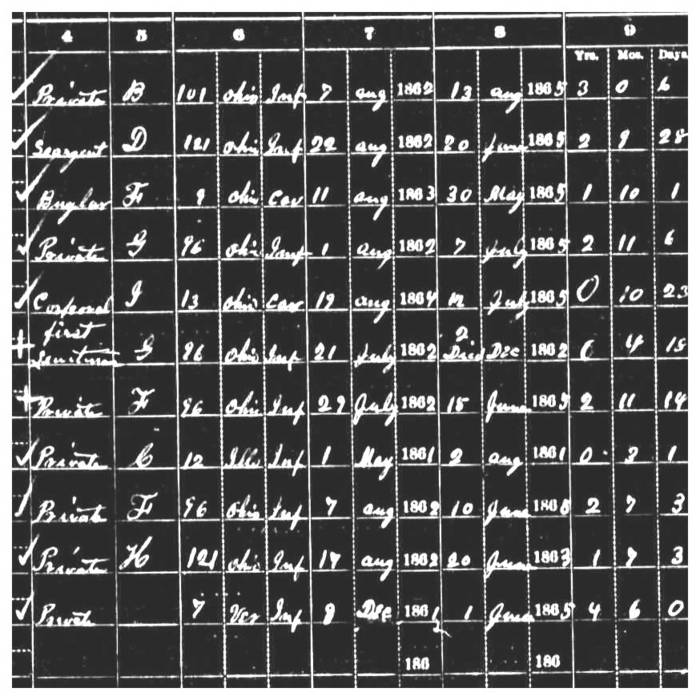 4 5 6 7 8 9
Yrs. Mos. Days
Private B 101 Ohio Inf 7 aug 1862 13 aug 1865 3 0 6
Seargent D 121 Ohio Inf 22 aug 1862 20 June 1865 2 9 28
Buglar F 9 Ohio Cav 11 aug 1863 30 May 1865 1 10 1
Private G 96 Ohio Inf 1 aug 1862 7 July 1865 2 11 6
Corporal I 13 Ohio Cav 19 aug 1864 12 July 1865 0 10 23
first
G 96 Ohio Inf 21 July 1862 2 Died Dec 1862 0 4 15
Private F 96 Ohio Inf 29 July 1862 15 June 1865 2 11 14
Private C 12 Ills Inf 1 May 1861 2 aug 1861 0 3 1
Private F 96 Ohio Inf 7 aug 1862 10 June 1865 2 7 3
Private H 121 Ohio Inf 17 aug 1862 20 June 1863 1 7 3
Private 7 Ver Inf 8 Dec 1861 1 June 1865 4 6 0
186 186